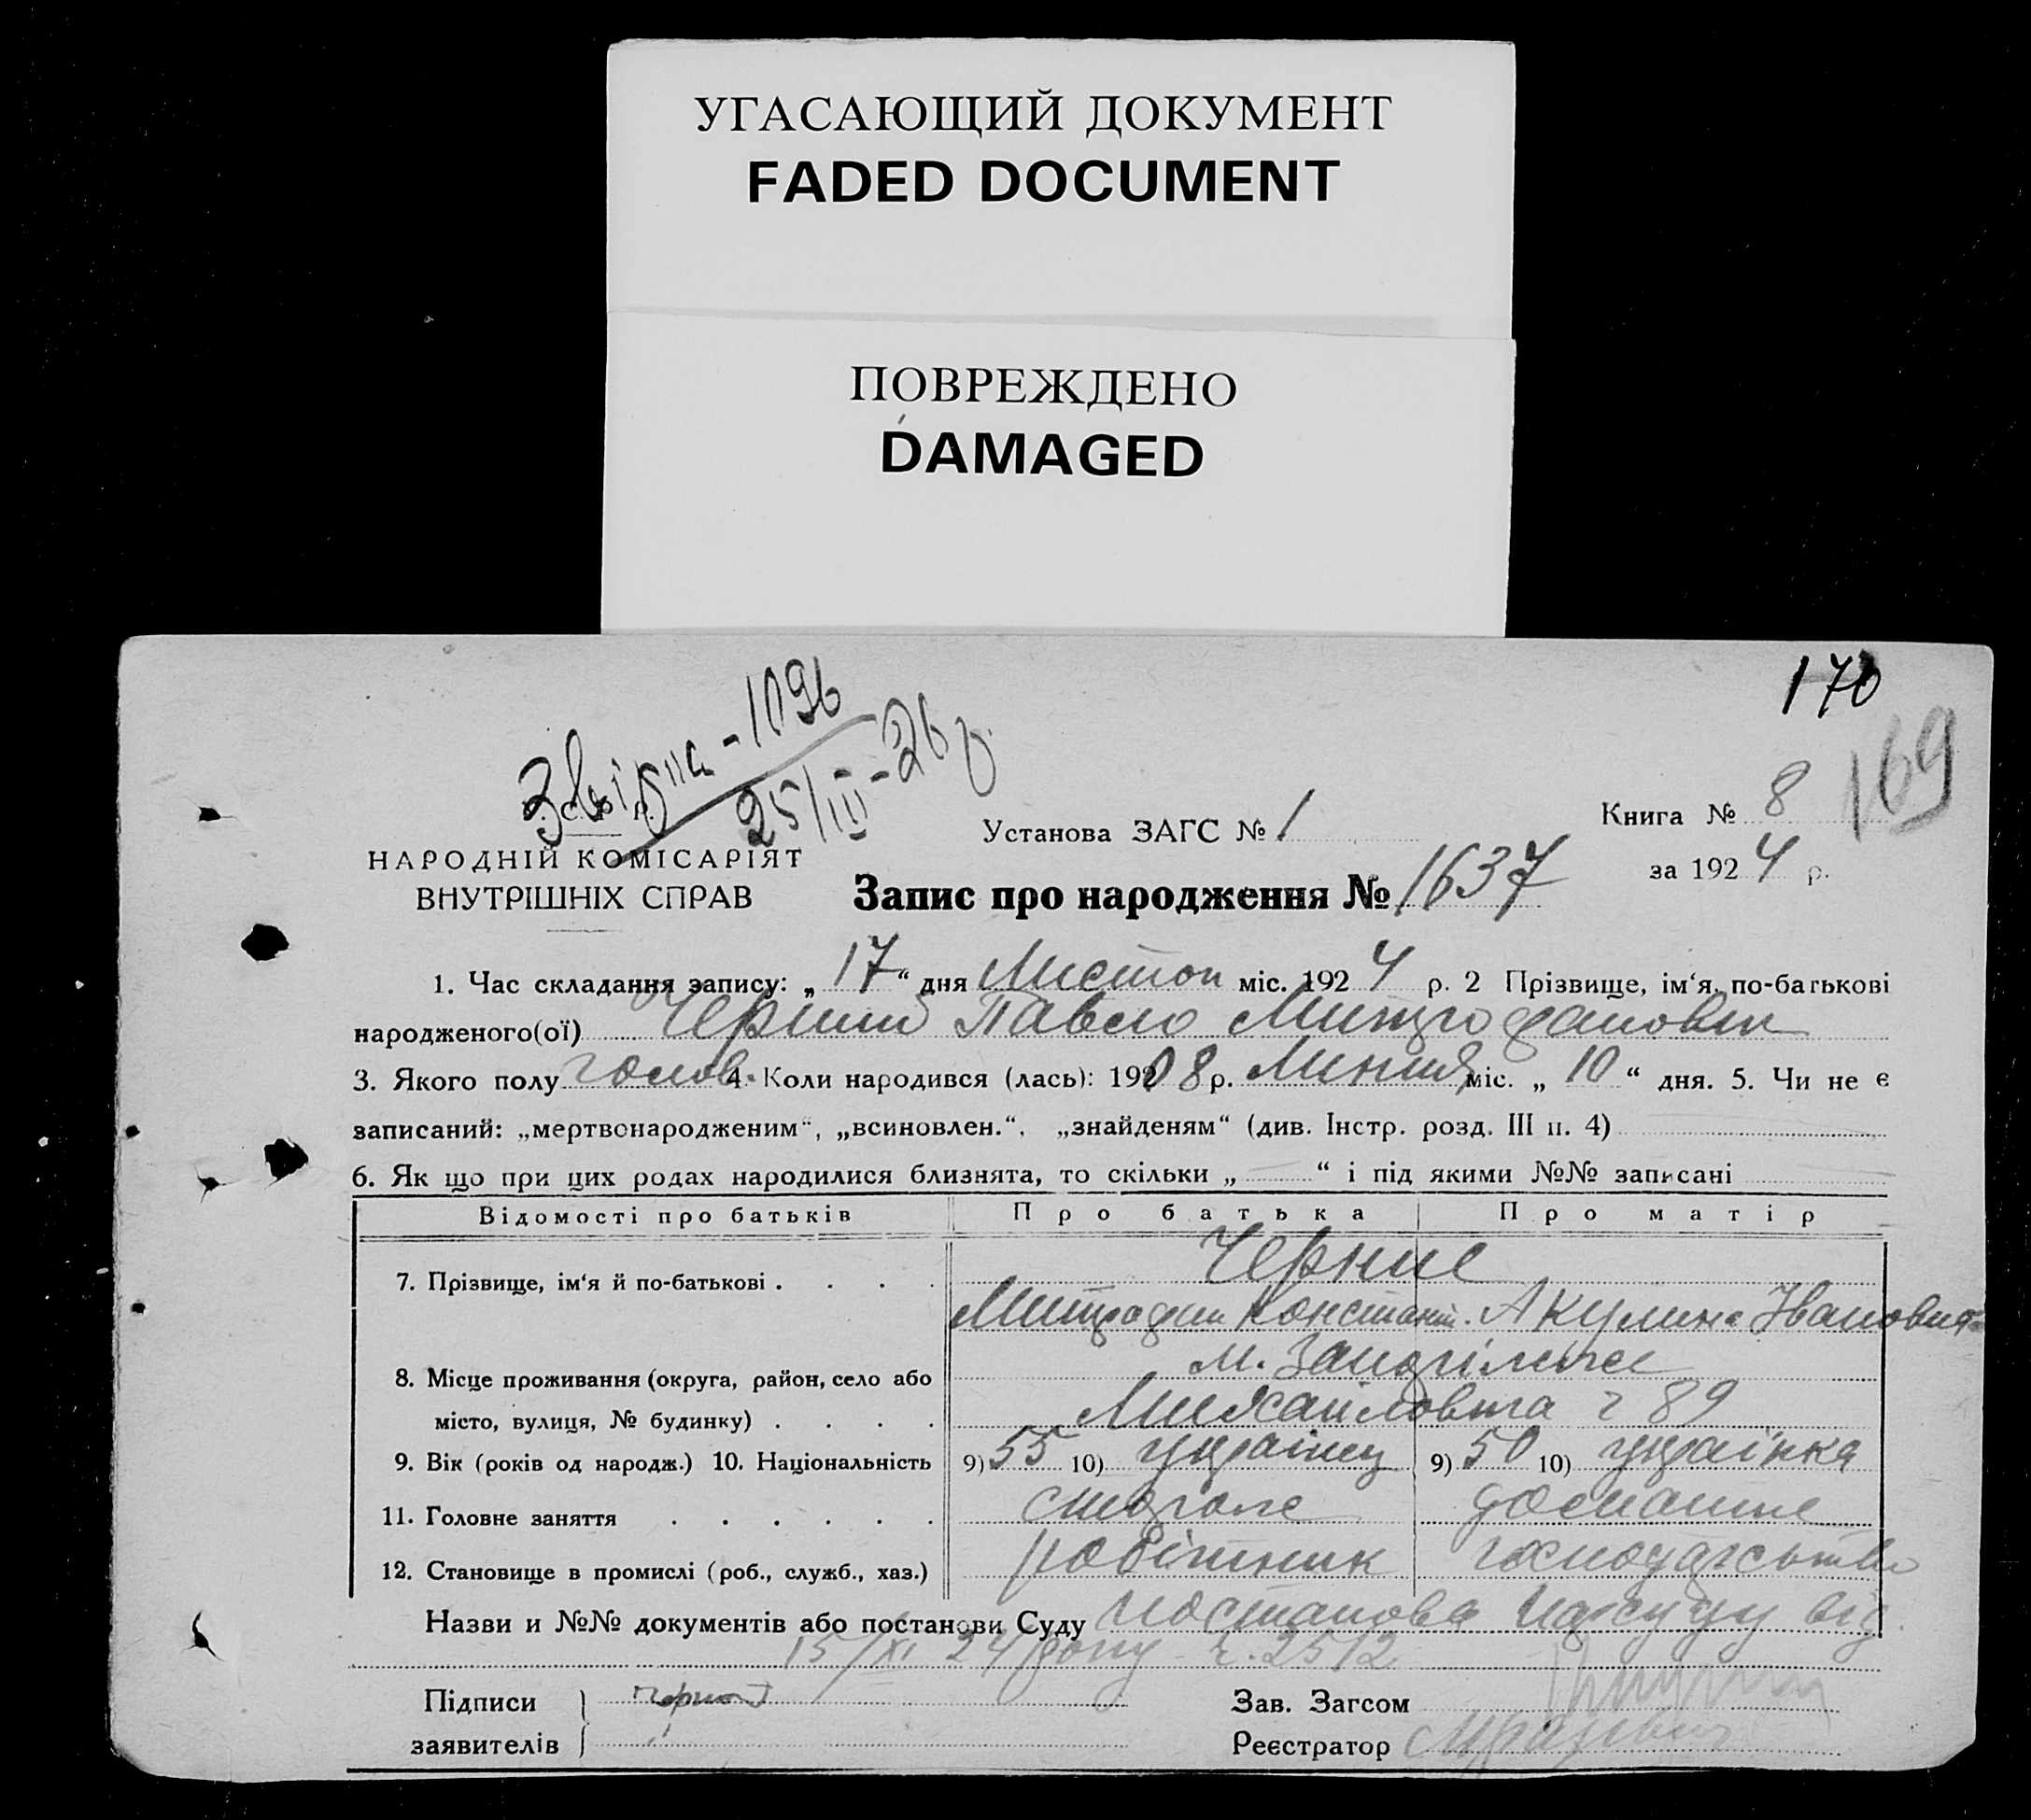 УГАСАЮЩИЙ ДОКУМЕНТ
FADED DOCUMENT
ПОВРЕЖДЕНО
DAMAGED
170
169
1096
25/III-26 р.
Книга № 8
Установа ЗАГС № 1
за 1924 р.
НАРОДНІЙ КОМІСАРІЯТ
ВНУТРІШНІХ СПРАВ
Запис про народження № 1637
1. Час складання запису: „ 17 “ дня Листоп міс. 1924 р. 2 Прізвище, ім‘я, по-батькові
народженого(ої) Черний Павло
3. Якого полу голов. 4. Коли народився (лась): 1908 р. Липня міс. „ 10 “ дня. 5. Чи не є
записаний: „мертвонародженим“, „всиновлен.“, „знайденям“ (див. Інстр. розд. III п. 4)
6. Як що при цих родах народилися близнята, то скільки „ “ і під якими №№ записані
Відомості про батьків Про батька Про матір
Черние
7. Прізвище, ім‘я й по-батькові . . . .
Констант. Акулина Івановна
м. Запоріжже
8. Місце проживання (округа, район, село або
місто, вулиця, № будинку) . . . . ч 89
9. Вік (років од народж.) 10. Національність 9) 55 10) українец 9) 50 10) українка
11. Головне заняття . . . . . . столяр домашне
12. Становище в промислі (роб., служб., хаз.) робітник господарство
Назви и №№ документів або постанови Суду постанова Нарсуду від
15/XI 24 року ч. 2512
Підписи
заявителів
Зав. Загсом
Реєстратор